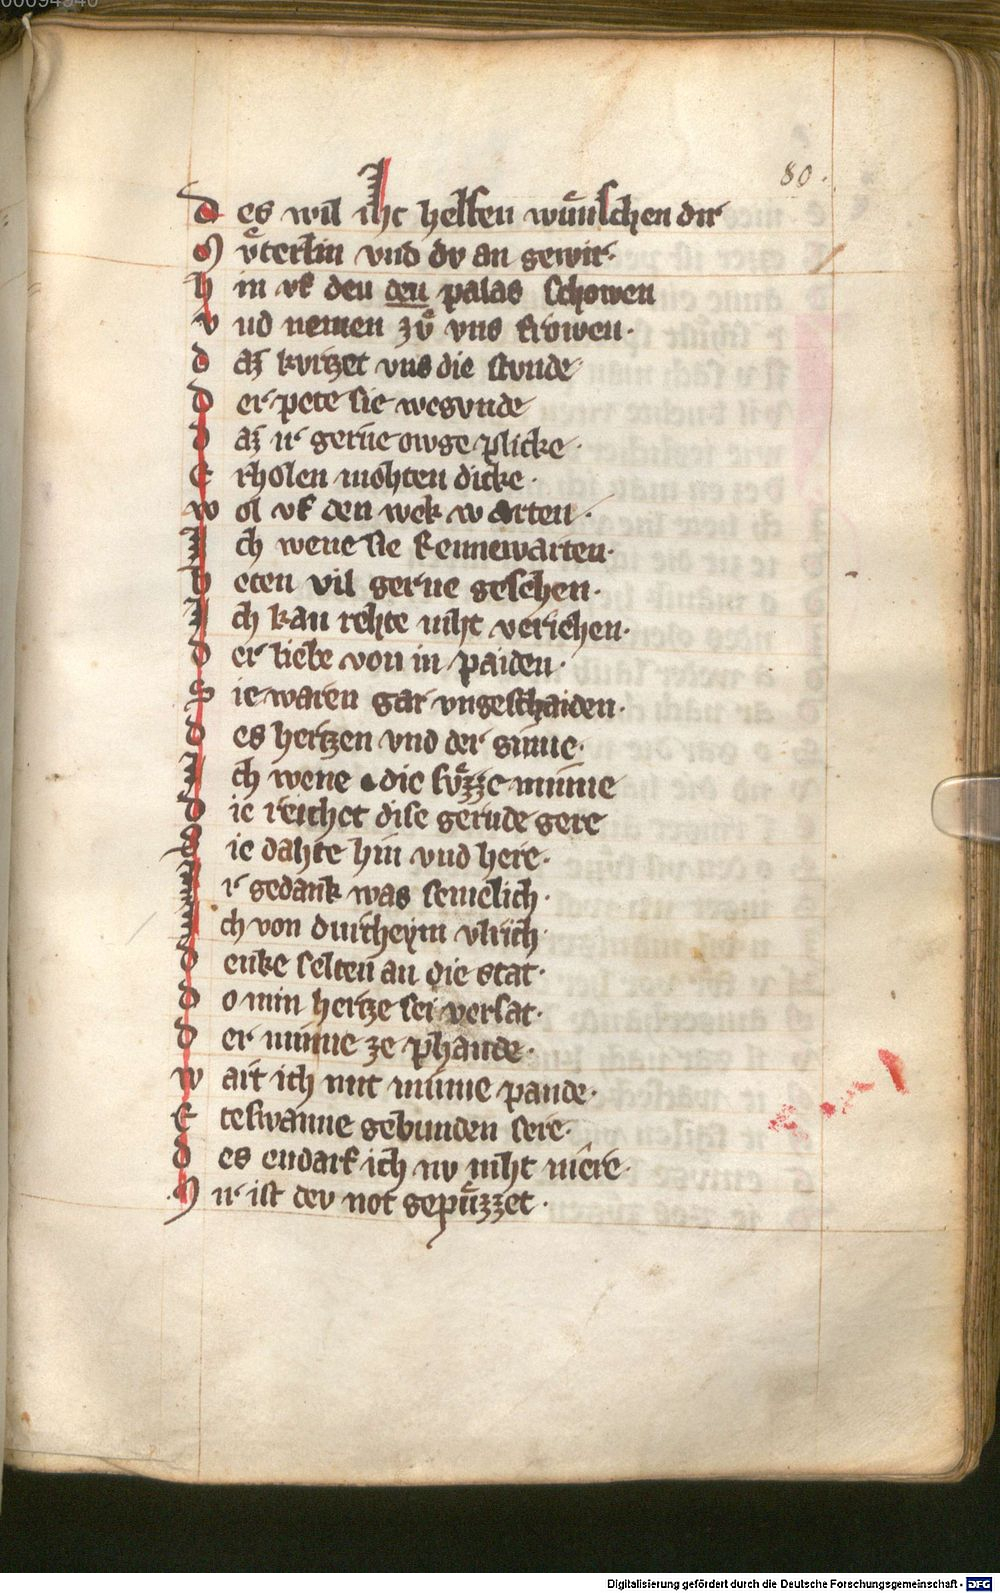 00094940
80.
D es wil iht helfen wuͤnschen dir
M vͦterlin vnd dv an gewir·
h in vf den den palas schowen
v nd nemen zvͦ vns frowen·
d az kvrtzet vns die stvnde
D er pete sie wegvnde
d az ir gerne owge plicke·
E rholen mohten dicke·
w ol vf den wek warten·
I ch wene sie Rennewarten·
h eten vil gerne gesehen·
I ch kan rehte niht veriehen·
d er liebe von in paiden·
S ie waren gar vngeschaiden·
d es hertzen vnd der sinne·
I ch wene die svͤzze minne
d ie reichet dise gernde gere
S ie dahte hin vnd here·
I r gedank was semelich·
I ch von durcheym vlrich·
d enke selten an die stat·
d o min hertze sei versat·
D er minne ze phande·
w art ich mit minne pande·
E teswanne gebunden sere·
d es endarf ich nv niht mere·
M ir ist dev not gepuͤzzet·
Digitalisierung gefördert durch die Deutsche Forschungsgemeinschaft - DFG